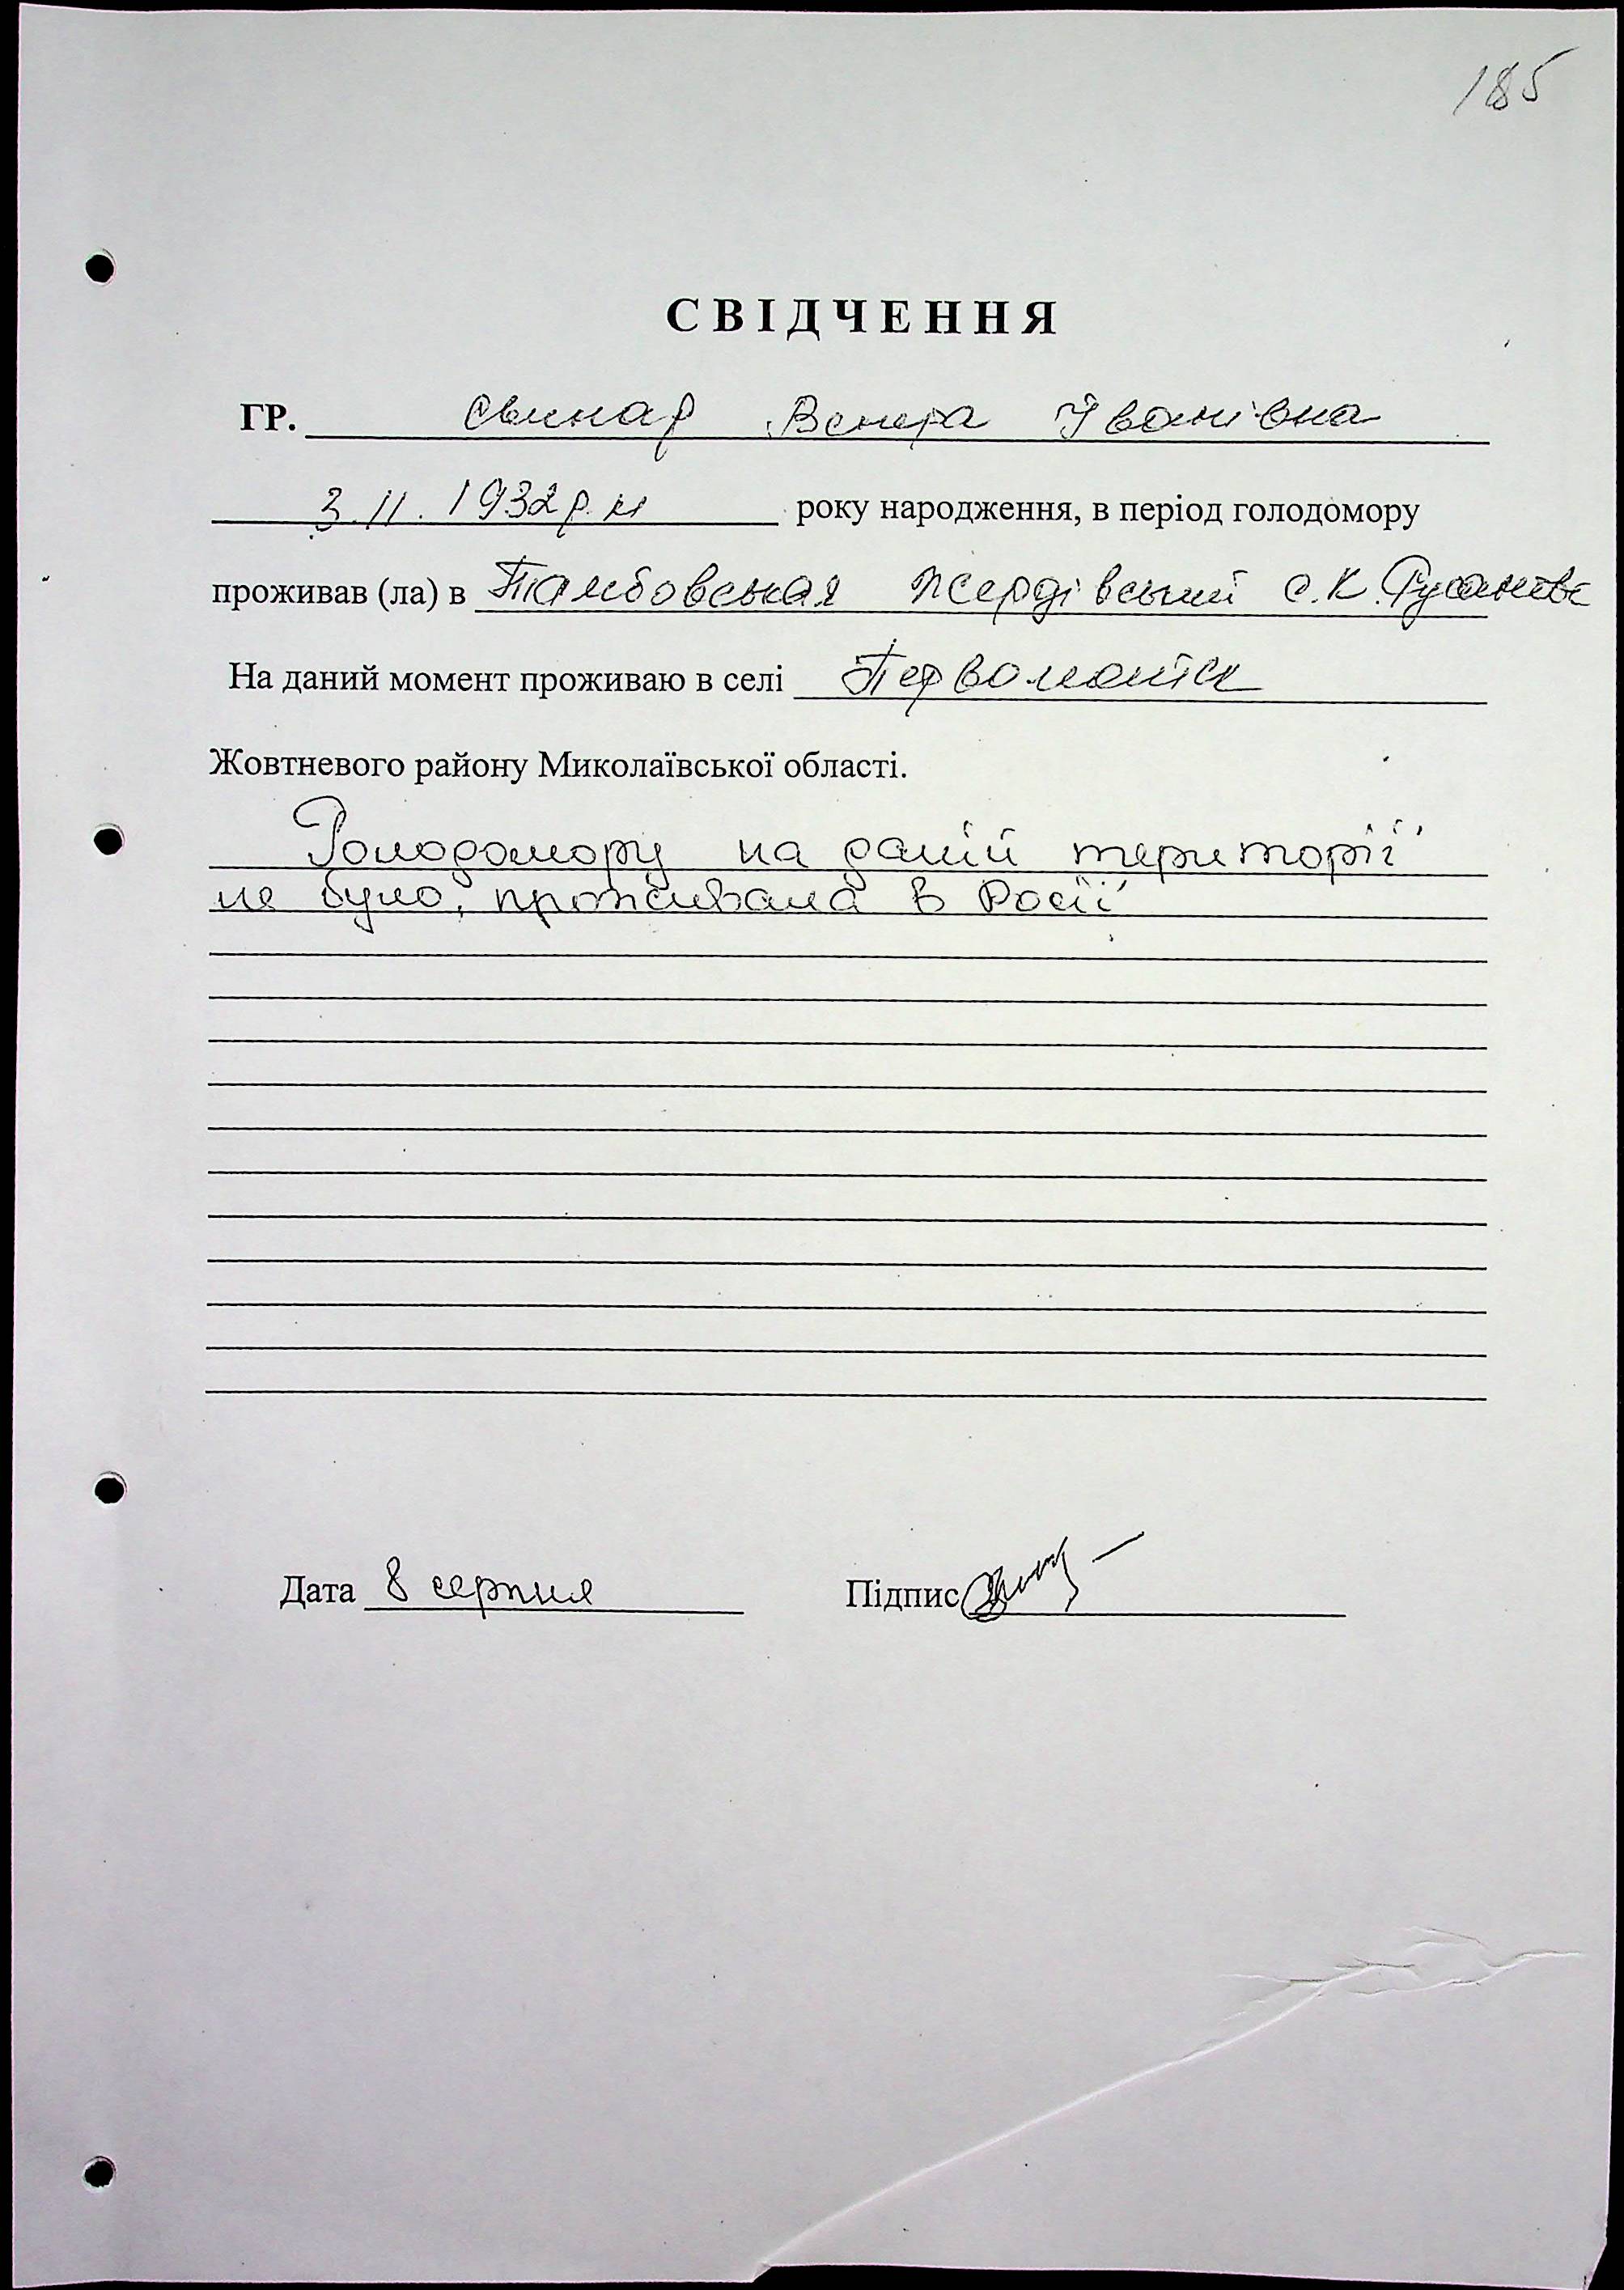 185
СВІДЧЕННЯ
ГР. Свинар Венера Іванівна
3.11.1932 р.н року народження, в період голодомору
проживав (ла) в Тамбовськая Жердівський с.К.Русанове
На даний момент проживаю в селі Первомайск
Жовтневого району Миколаївської області.
Голодомору на даній території
не було, проживала в Росії
Дата 8 серпня Підпис